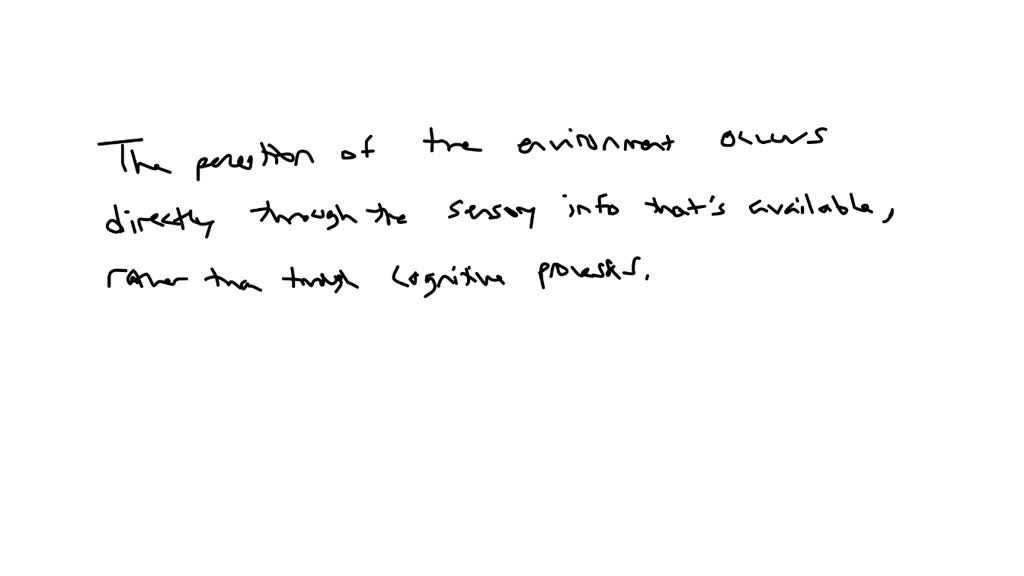 The perception of the environment occurs
directly through the sensory info that's available,
rather than through cognitive processes.